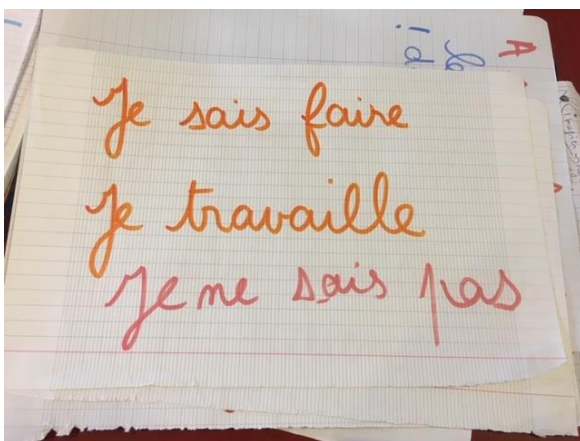 Je sais faire
Je travaille
Je ne sais pas